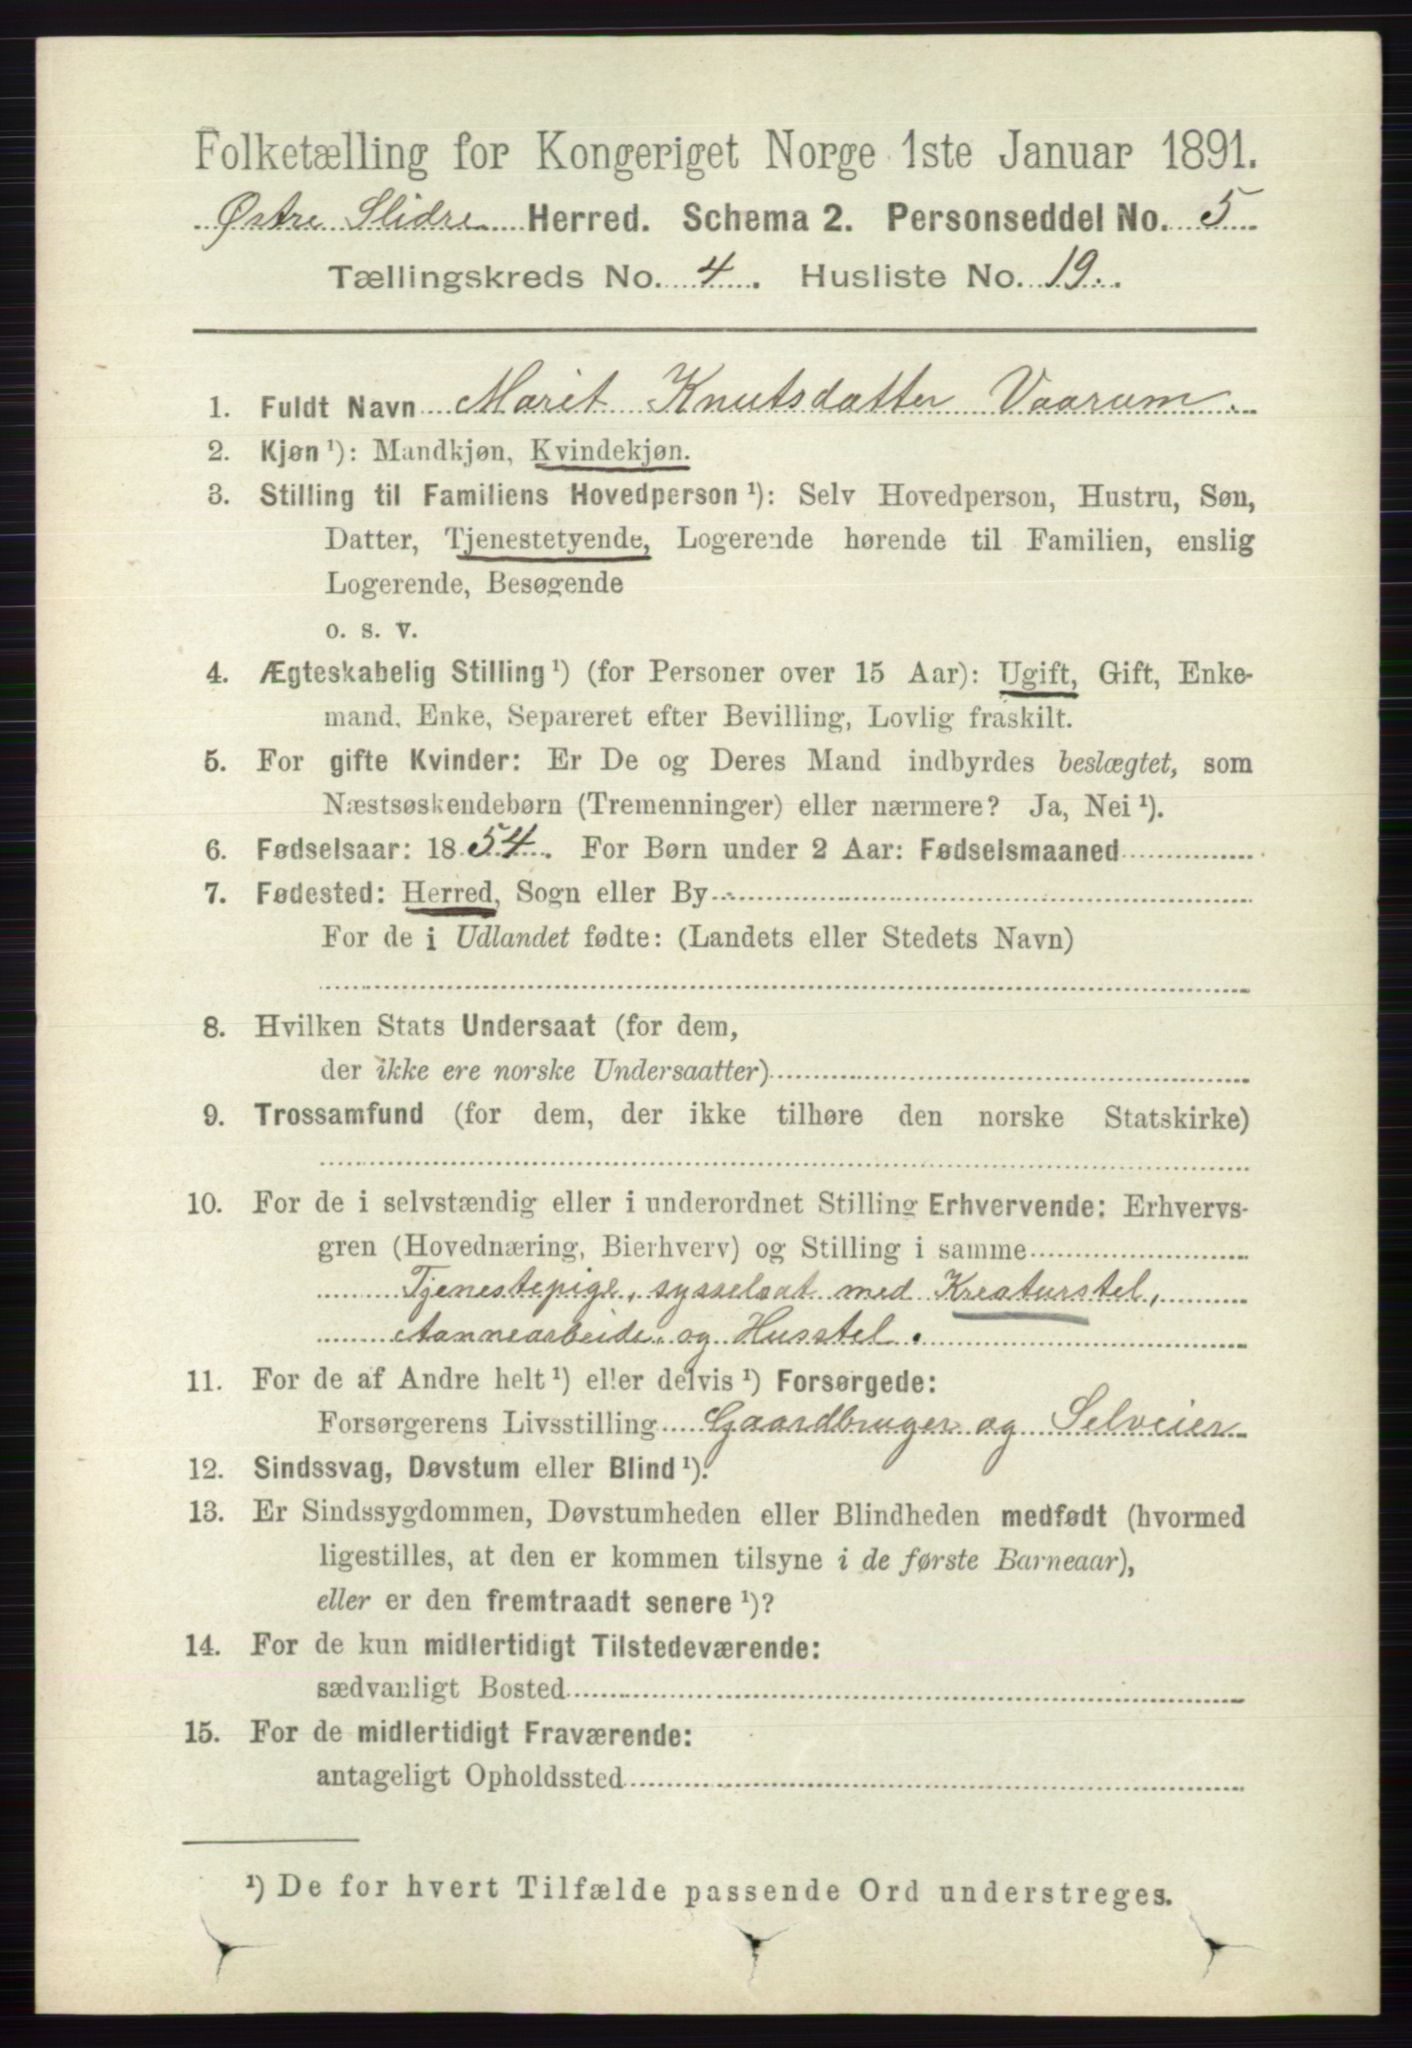 Folketælling for Kongeriget Norge 1ste Januar 1891.
Østre Slidre Herred. Schema 2. Personseddel No. 5
Tællingskreds No. 4. Husliste No. 19.
1. Fuldt Navn Marit Knutsdatter Vaarum.
2. Kjøn ¹): Mandkjøn, Kvindekjøn.
3. Stilling til Familiens Hovedperson ¹): Selv Hovedperson, Hustru, Søn,
Datter, Tjenestetyende, Logerende hørende til Familien, enslig
Logerende, Besøgende
o. s. v.
4. Ægteskabelig Stilling ¹) (for Personer over 15 Aar): Ugift, Gift, Enke-
mand, Enke, Separeret efter Bevilling, Lovlig fraskilt.
5. For gifte Kvinder: Er De og Deres Mand indbyrdes beslægtet, som
Næstsøskendebørn (Tremenninger) eller nærmere? Ja, Nei ¹).
6. Fødselsaar: 1854. For Børn under 2 Aar: Fødselsmaaned
7. Fødested: Herred, Sogn eller By
For de i Udlandet fødte: (Landets eller Stedets Navn)
8. Hvilken Stats Undersaat (for dem,
der ikke ere norske Undersaatter)
9. Trossamfund (for dem, der ikke tilhøre den norske Statskirke)
10. For de i selvstændig eller i underordnet Stilling Erhvervende: Erhvervs-
gren (Hovednæring, Bierhverv) og Stilling i samme
Tjenestepige, sysselsat med Kreaturstel,
Aannearbeide og Husstel.
11. For de af Andre helt ¹) eller delvis ¹) Forsørgede:
Forsørgerens Livsstilling Gaardbruger og Selveier
12. Sindssvag, Døvstum eller Blind ¹).
13. Er Sindssygdommen, Døvstumheden eller Blindheden medfødt (hvormed
ligestilles, at den er kommen tilsyne i de første Barneaar),
eller er den fremtraadt senere ¹)?
14. For de kun midlertidigt Tilstedeværende:
sædvanligt Bosted
15. For de midlertidigt Fraværende:
antageligt Opholdssted
¹) De for hvert Tilfælde passende Ord understreges.